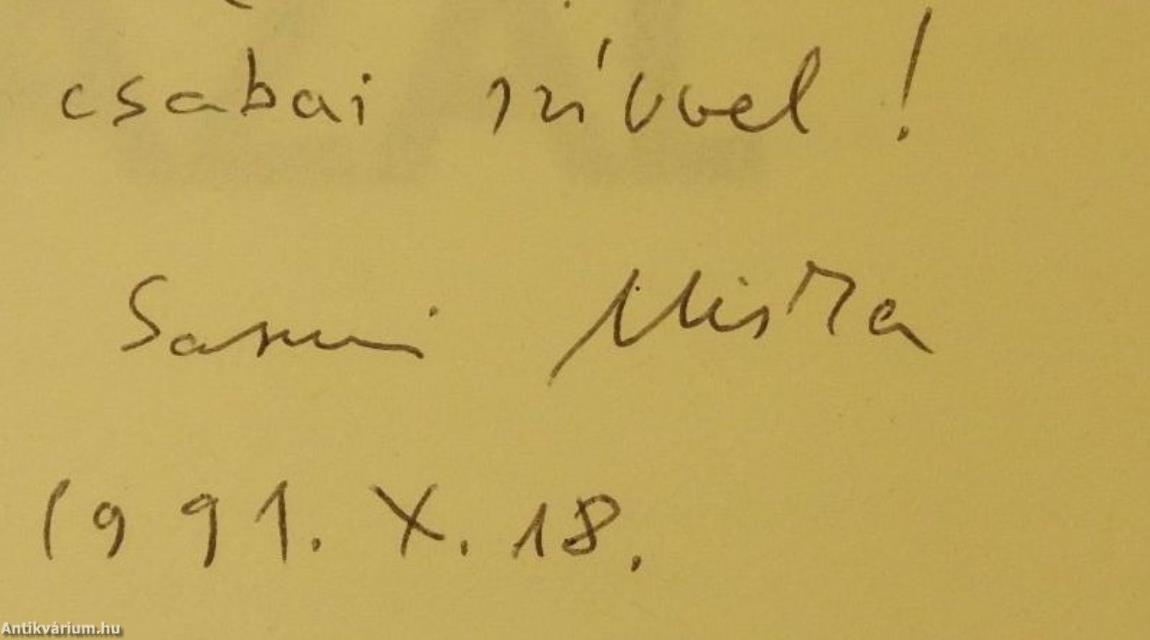 csabai szívvel!
Sass Miska
1991. X. 18.
Antikvárium.hu